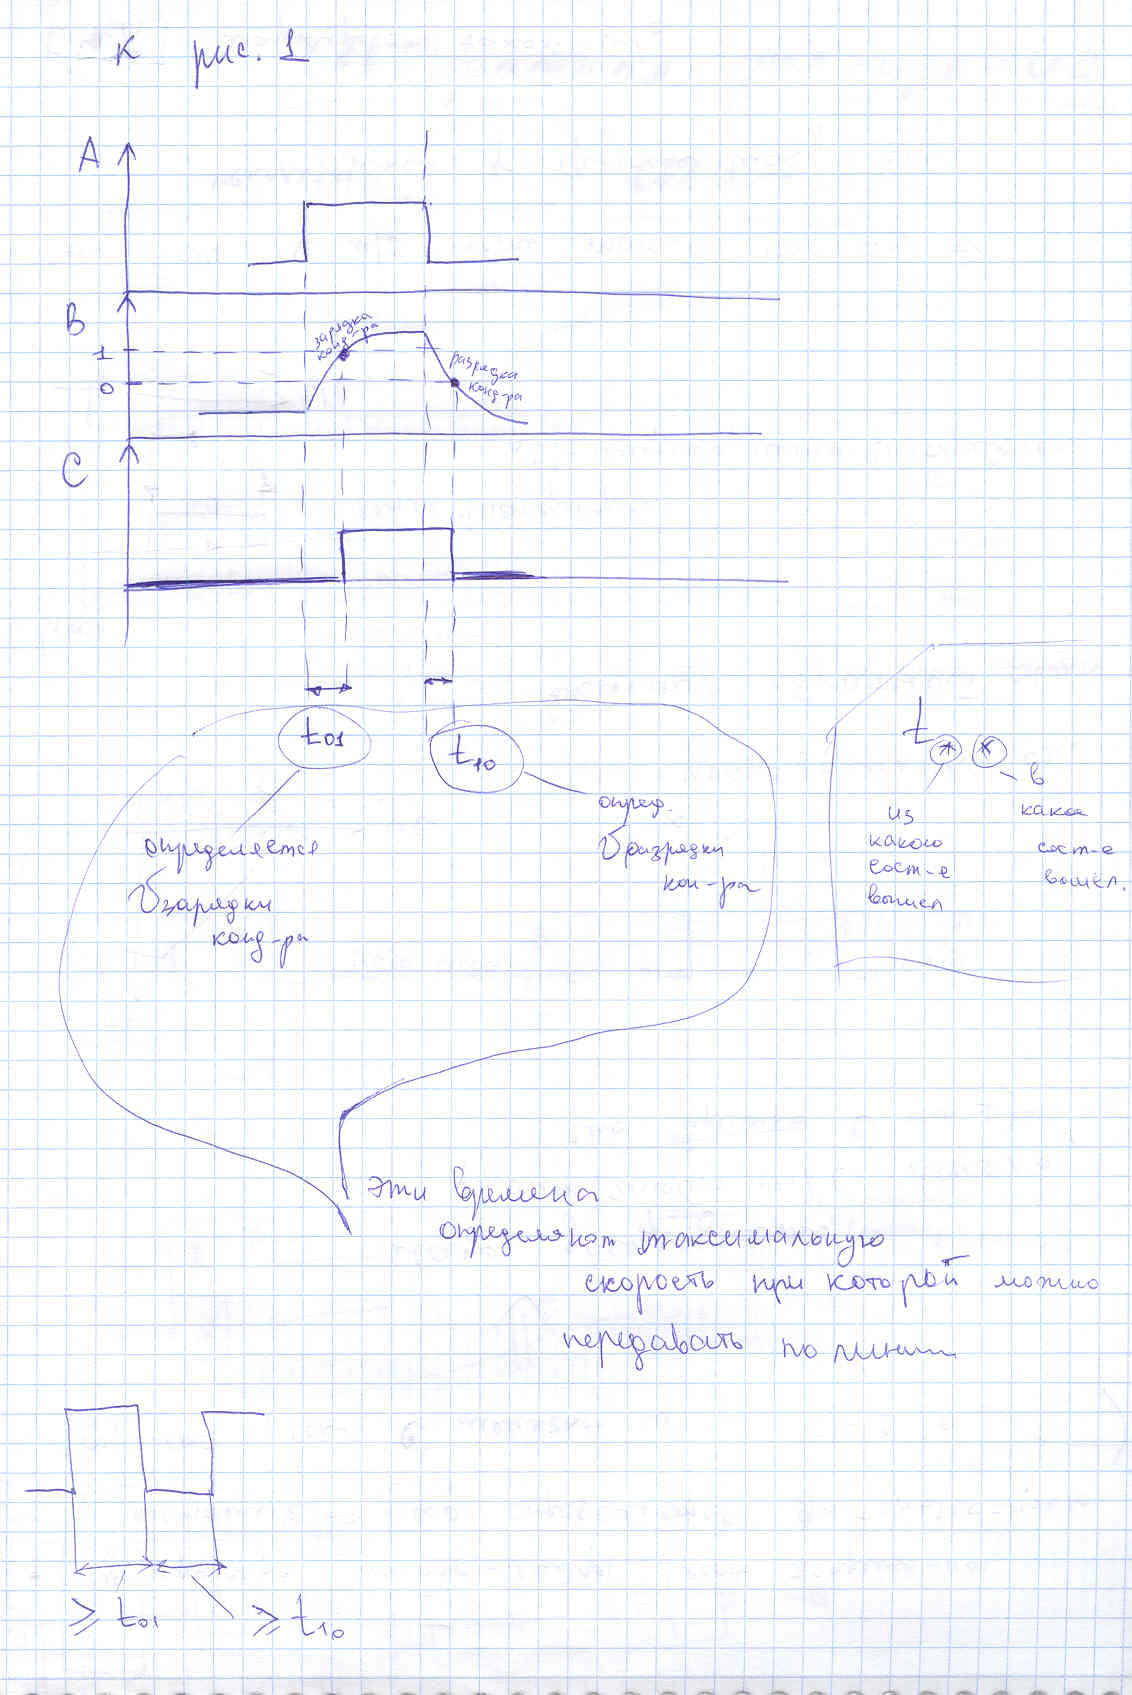 К рис. 1
A
B
1
0
зарядка
конд-ра
разрядка
конд-ра
C
t01
t10
определяется
Vзарядки
конд-ра
опред.
Vразрядки
кон-ра
t * *
из
какого
сост-е
вышел
в
какое
сост-е
вошел.
Эти времена
определяют максимальную
скорость при которой можно
передавать по линии
≥ t01
≥ t10